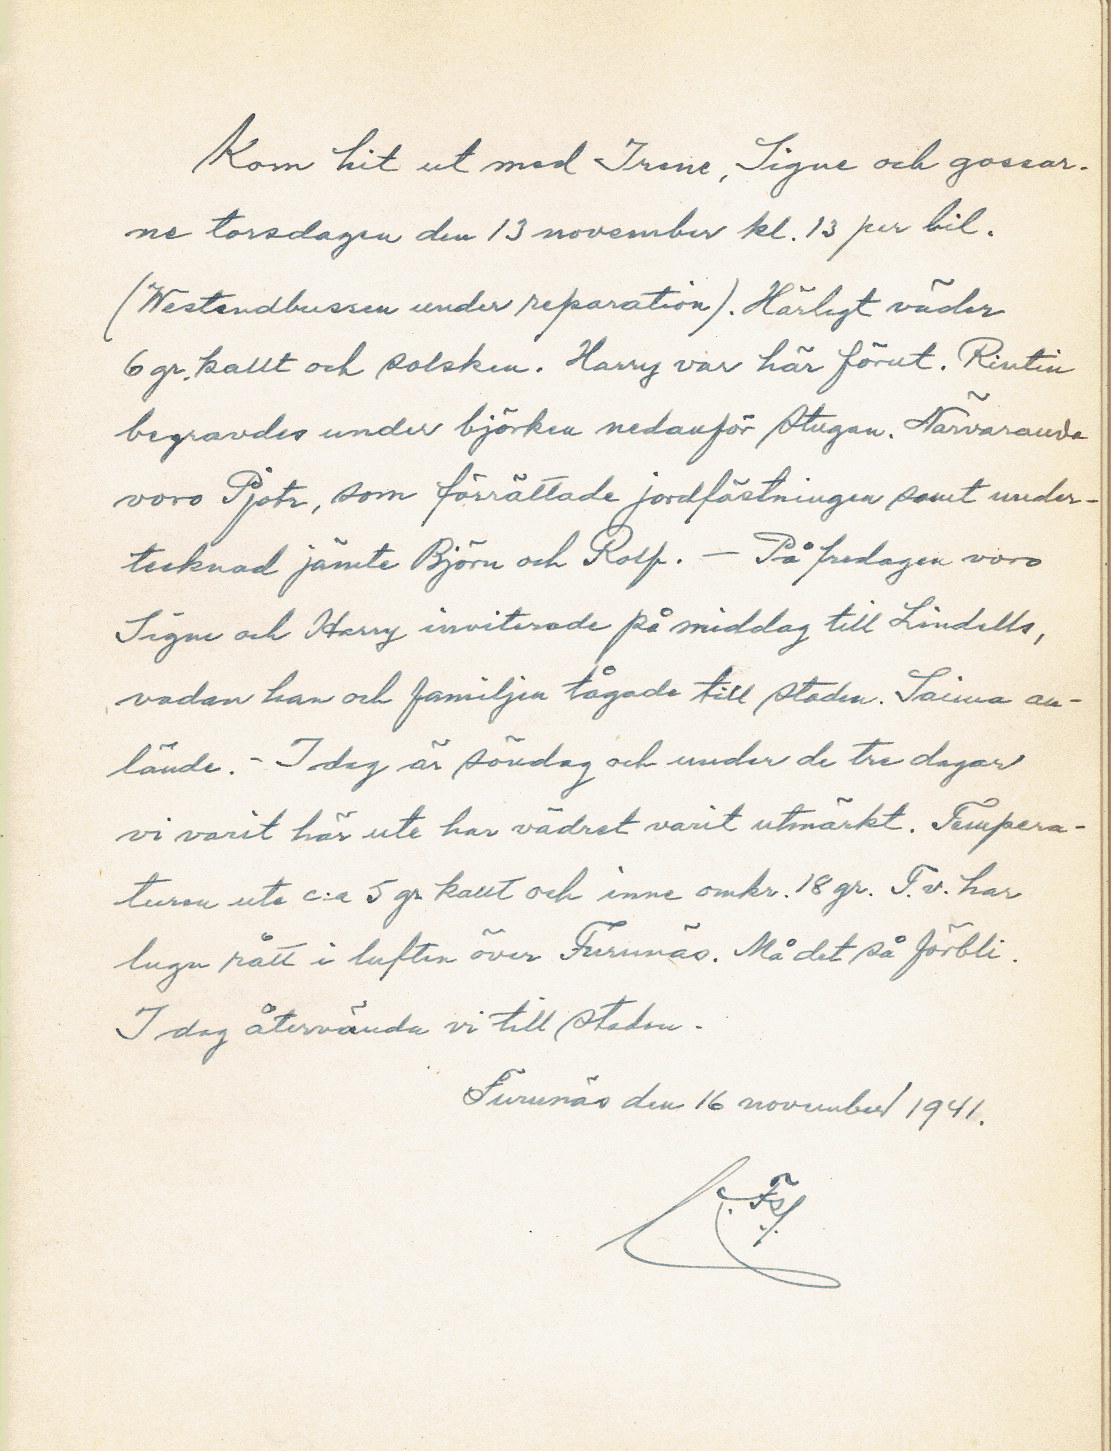 Kom hit ut med Irene, Signe och gossar-
ne torsdagen den 13 november kl. 13 per bil.
(Westendbussen under reparation). Härligt väder
6 gr. kallt och solsken. Harry var här förut. Rintin
begravdes under björken nedanför stugan. Närvarande
voro Pjotr, som förrättade jordfästningen samt under-
tecknad jämte Björn och Rolf. — På fredagen voro
Signe och Harry inviterade på middag till Lindells,
vadan han och familjen tågade till staden. Saima an-
lände. - I dag är söndag och under de tre dagar
vi varit här ute har vädret varit utmärkt. Tempera-
turen ute c:a 5 gr kallt och inne omkr. 18 gr. T.v. har
lugn rått i luften över Furunäs. Må det så förbli.
I dag återvända vi till staden.
Furunäs den 16 november 1941.